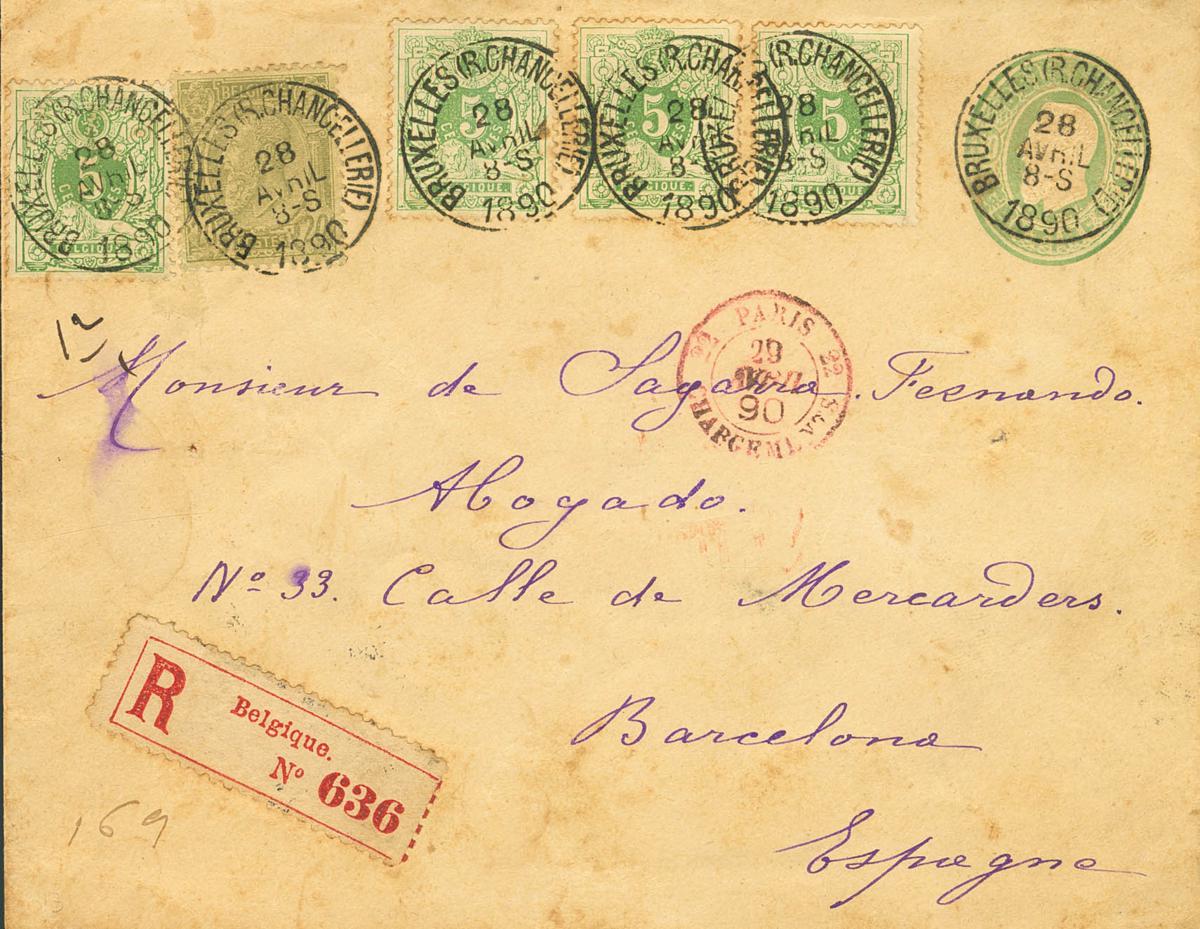 5
BELGIQUE.
BRUXELLES (R.CHANCELLERIE)
28
AVRIL
8-S
1890
BRUXELLES (R.CHANCELLERIE)
28
AVRIL
8-S
1890
5
BELGIQUE.
BRUXELLES (R.CHANCELLERIE)
28
AVRIL
8-S
1890
5
BELGIQUE.
BRUXELLES (R.CHANCELLERIE)
28
AVRIL
8
1890
5
BRUXELLES (R.CHANCELLERIE)
28
AVRIL
8-S
1890
BRUXELLES (R.CHANCELLERIE)
28
AVRIL
8-S
1890
22 PARIS 22
29
90
CHARGEMENTS
12
Monsieur de Sagarra. Fernando.
Abogado.
Nº 33. Calle de Mercarders.
Barcelona
Espagne
R
Belgique.
Nº 636
169